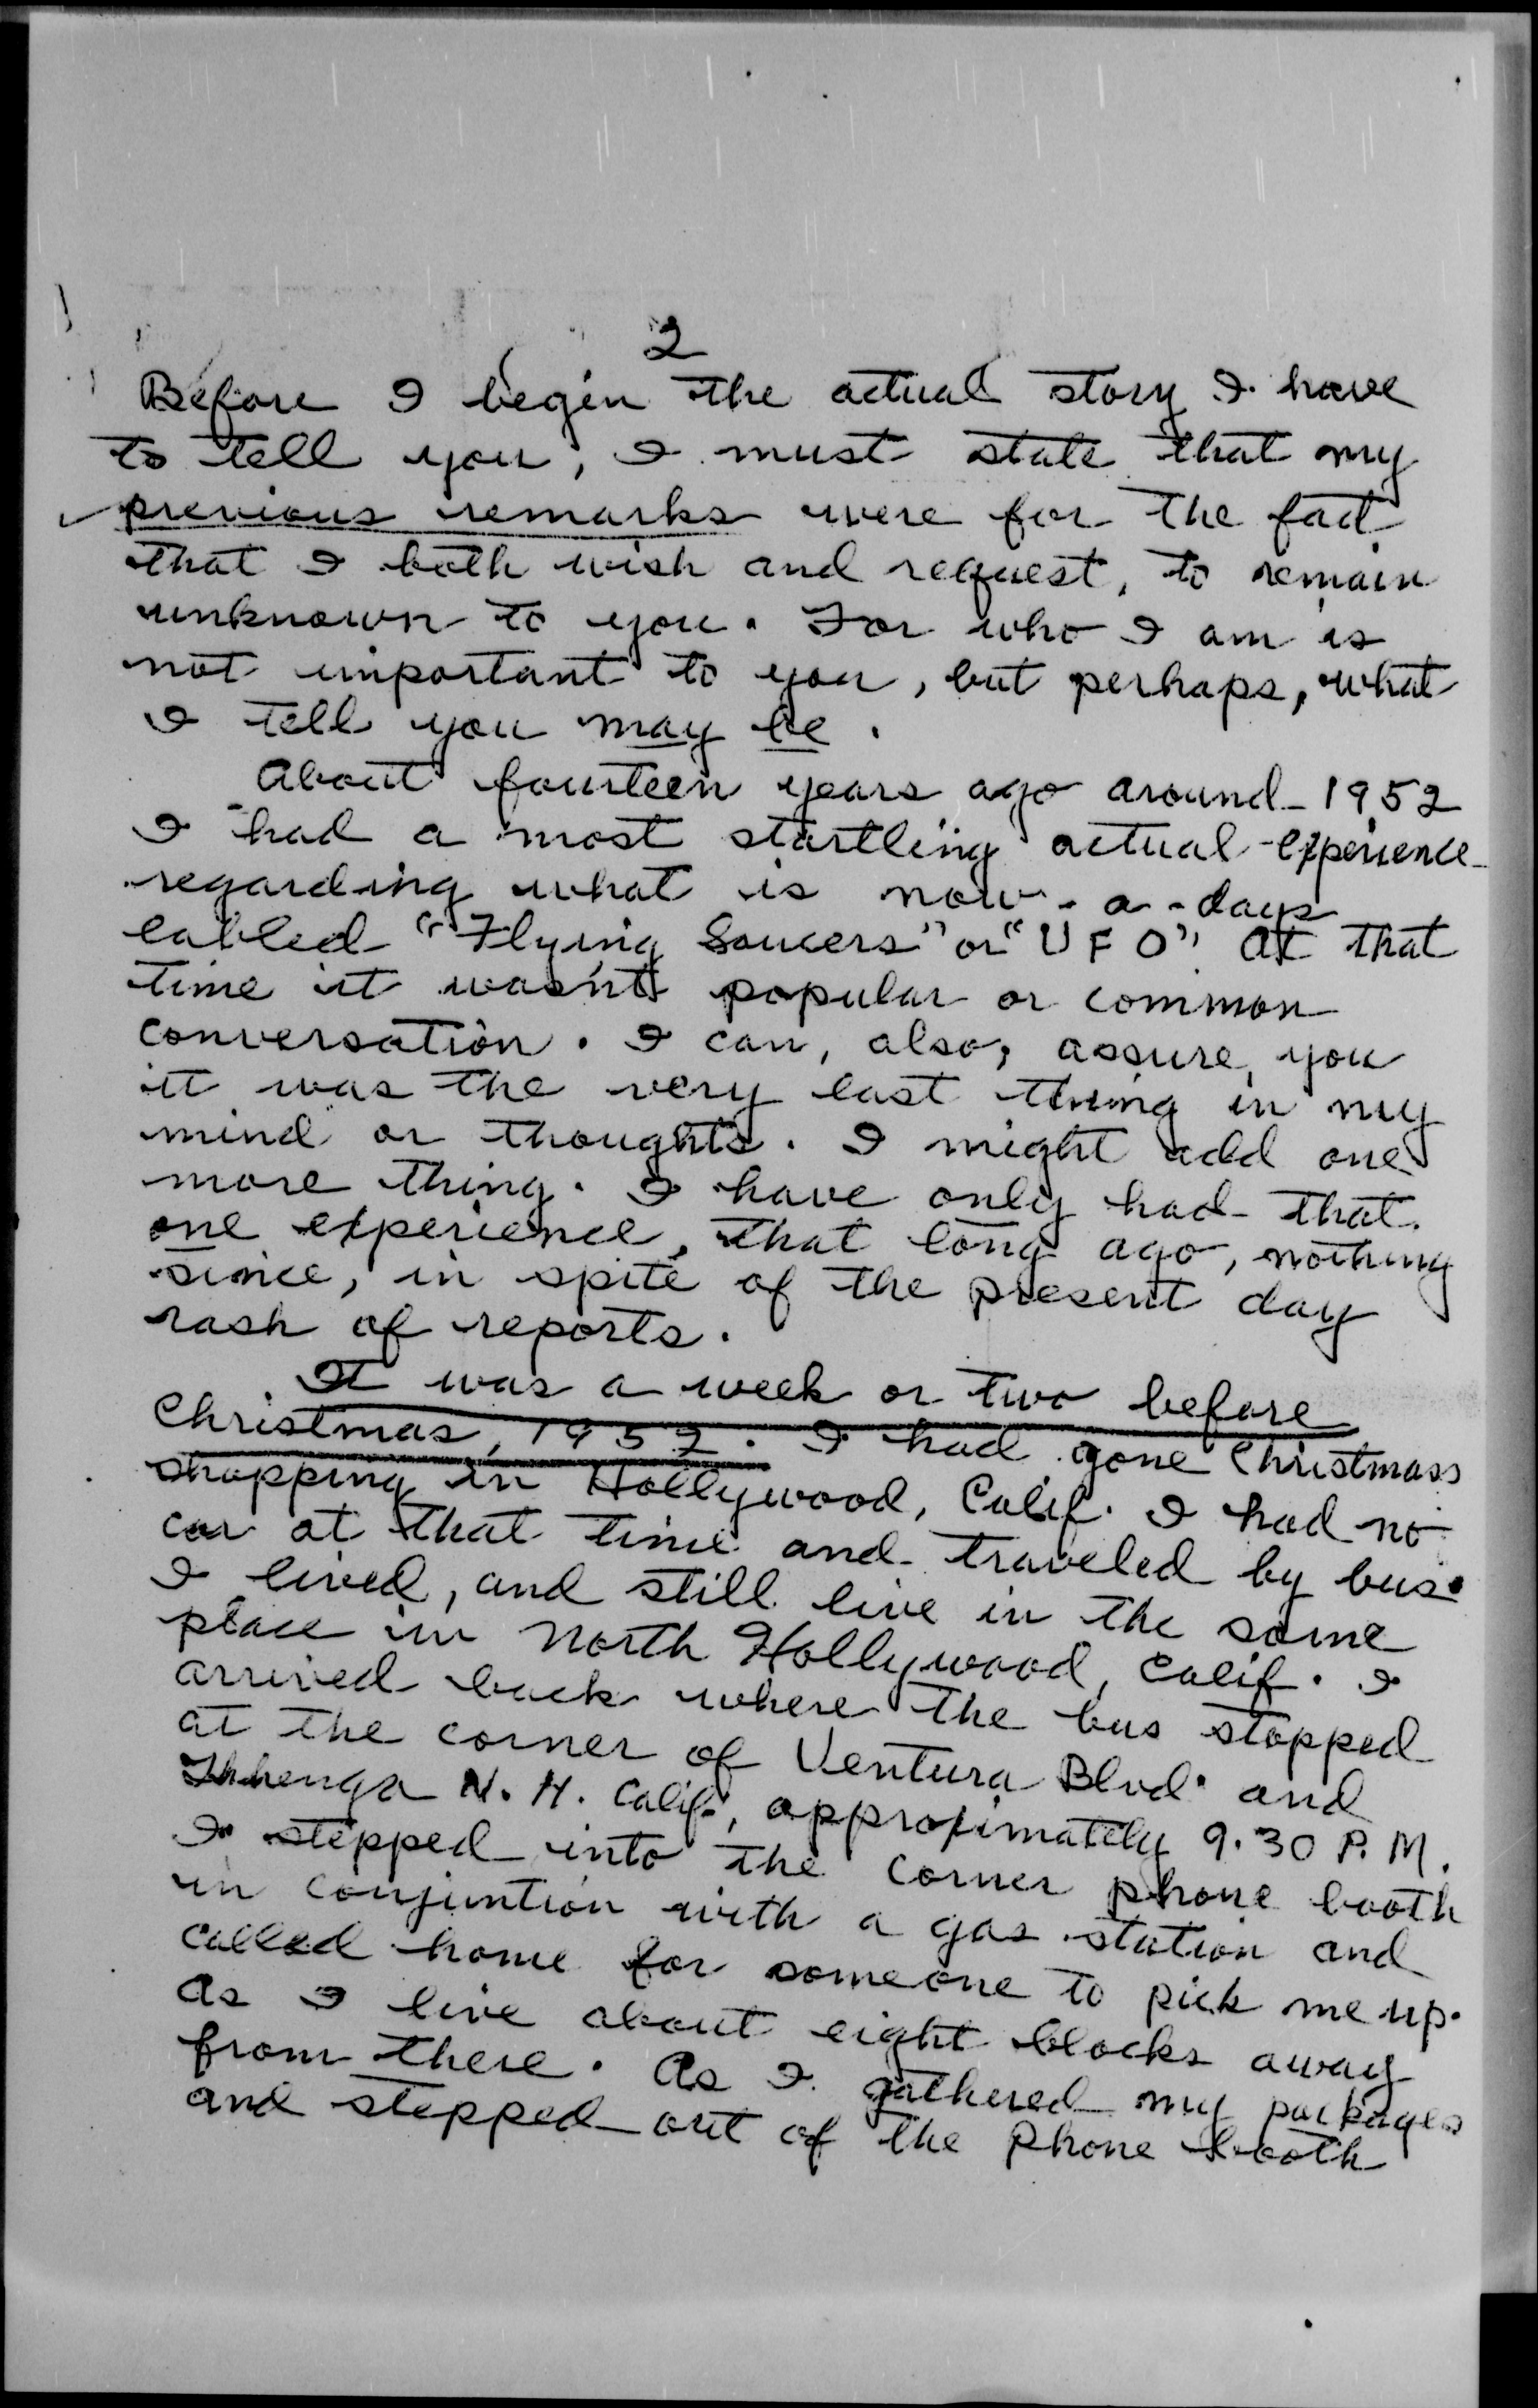 2
Before I begin the actual story I have
to tell you, I must state that my
previous remarks were for the fact
that I both wish and request, to remain
unknown to you. For who I am is
not important to you, but perhaps, what
I tell you may be.
About fourteen years ago around 1952
I had a most startling actual experience
regarding what is now-a-days
labled "Flying Saucers" or "U F O". At that
time it wasn't popular or common
conversation. I can, also, assure you
it was the very last thing in my
mind or thoughts. I might add one
more thing. I have only had that
one experience, that long ago, nothing
since, in spite of the present day
rash of reports.
It was a week or two before
Christmas, 1952. I had gone Christmass
shopping in Hollywood, Calif. I had no
car at that time and traveled by bus.
I lived, and still live in the same
place in North Hollywood, Calif. I
arrived back where the bus stopped
at the corner of Ventura Blvd. and
N. H. Calif., approximately 9.30 P.M.
I stepped into the corner phone booth
in conjuntion with a gas station and
called home for someone to pick me up.
As I live about eight blocks away
from there. As I gathered my packages
and stepped out of the phone booth